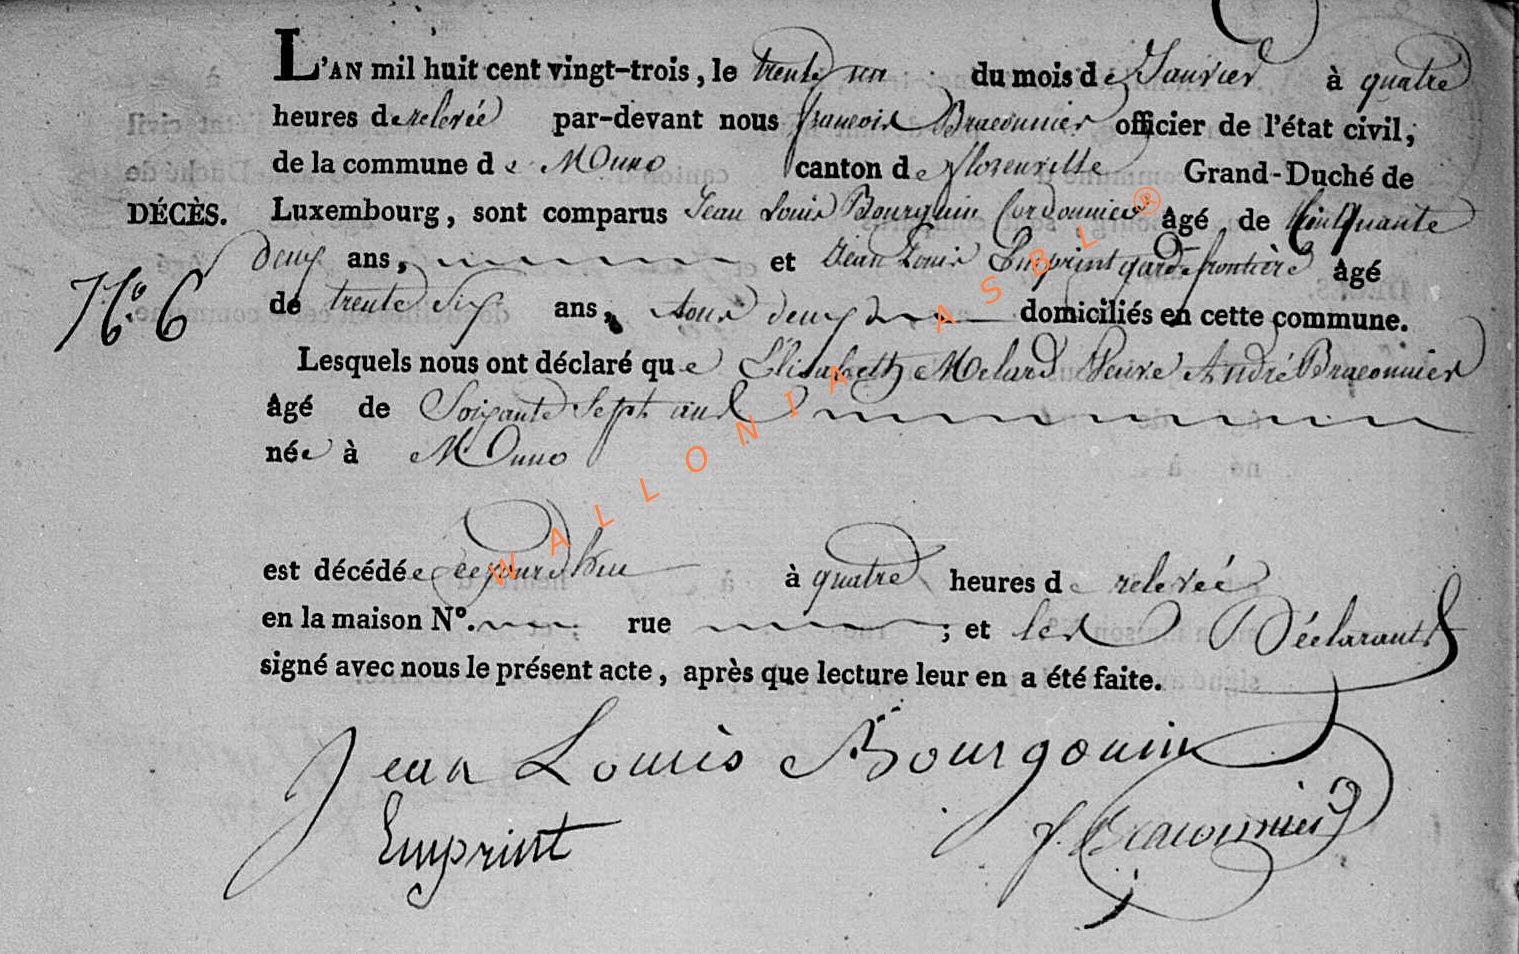 L'AN mil huit cent vingt-trois, le trente un du mois de Janvier à quatre
heures de relevée par-devant nous francois Braconnier officier de l'état civil,
de la commune de Muno canton de florenville Grand-Duché de
DÉCÈS. Luxembourg, sont comparus Jean Louis Bourguin Cordonnier âgé de Cinquante
deux ans, et Jean Louis Emprint garde frontière âgé
N.º 6 de trente Six ans, tous deux domiciliés en cette commune.
Lesquels nous ont déclaré que Elisabeth Melard Veuve André Braconnier
âgé de Soixante Sept ans
née à Muno
est décédée cejourdhui à quatre heures de relevée
en la maison Nº. rue ; et les Déclarants
signé avec nous le présent acte, après que lecture leur en a été faite.
Jean Louis Bourgouin
Emprint f. Braconnier
WALLONIA ASBL ®